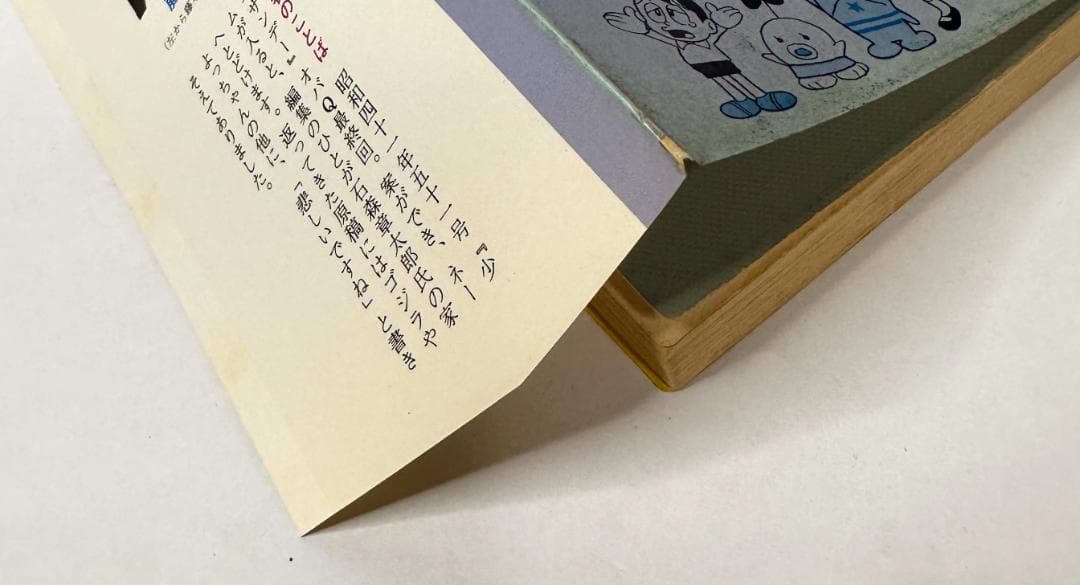 のことば
昭和四十一年五十一号『少
サンデー』オバQ最終回。案ができ、ネー
ムが入ると、編集のひとが石森章太郎氏の家
へとどけます。返ってきた原稿にはゴジラや
よっちゃんの他に、「悲しいですね」と書き
そえてありました。
(左から藤